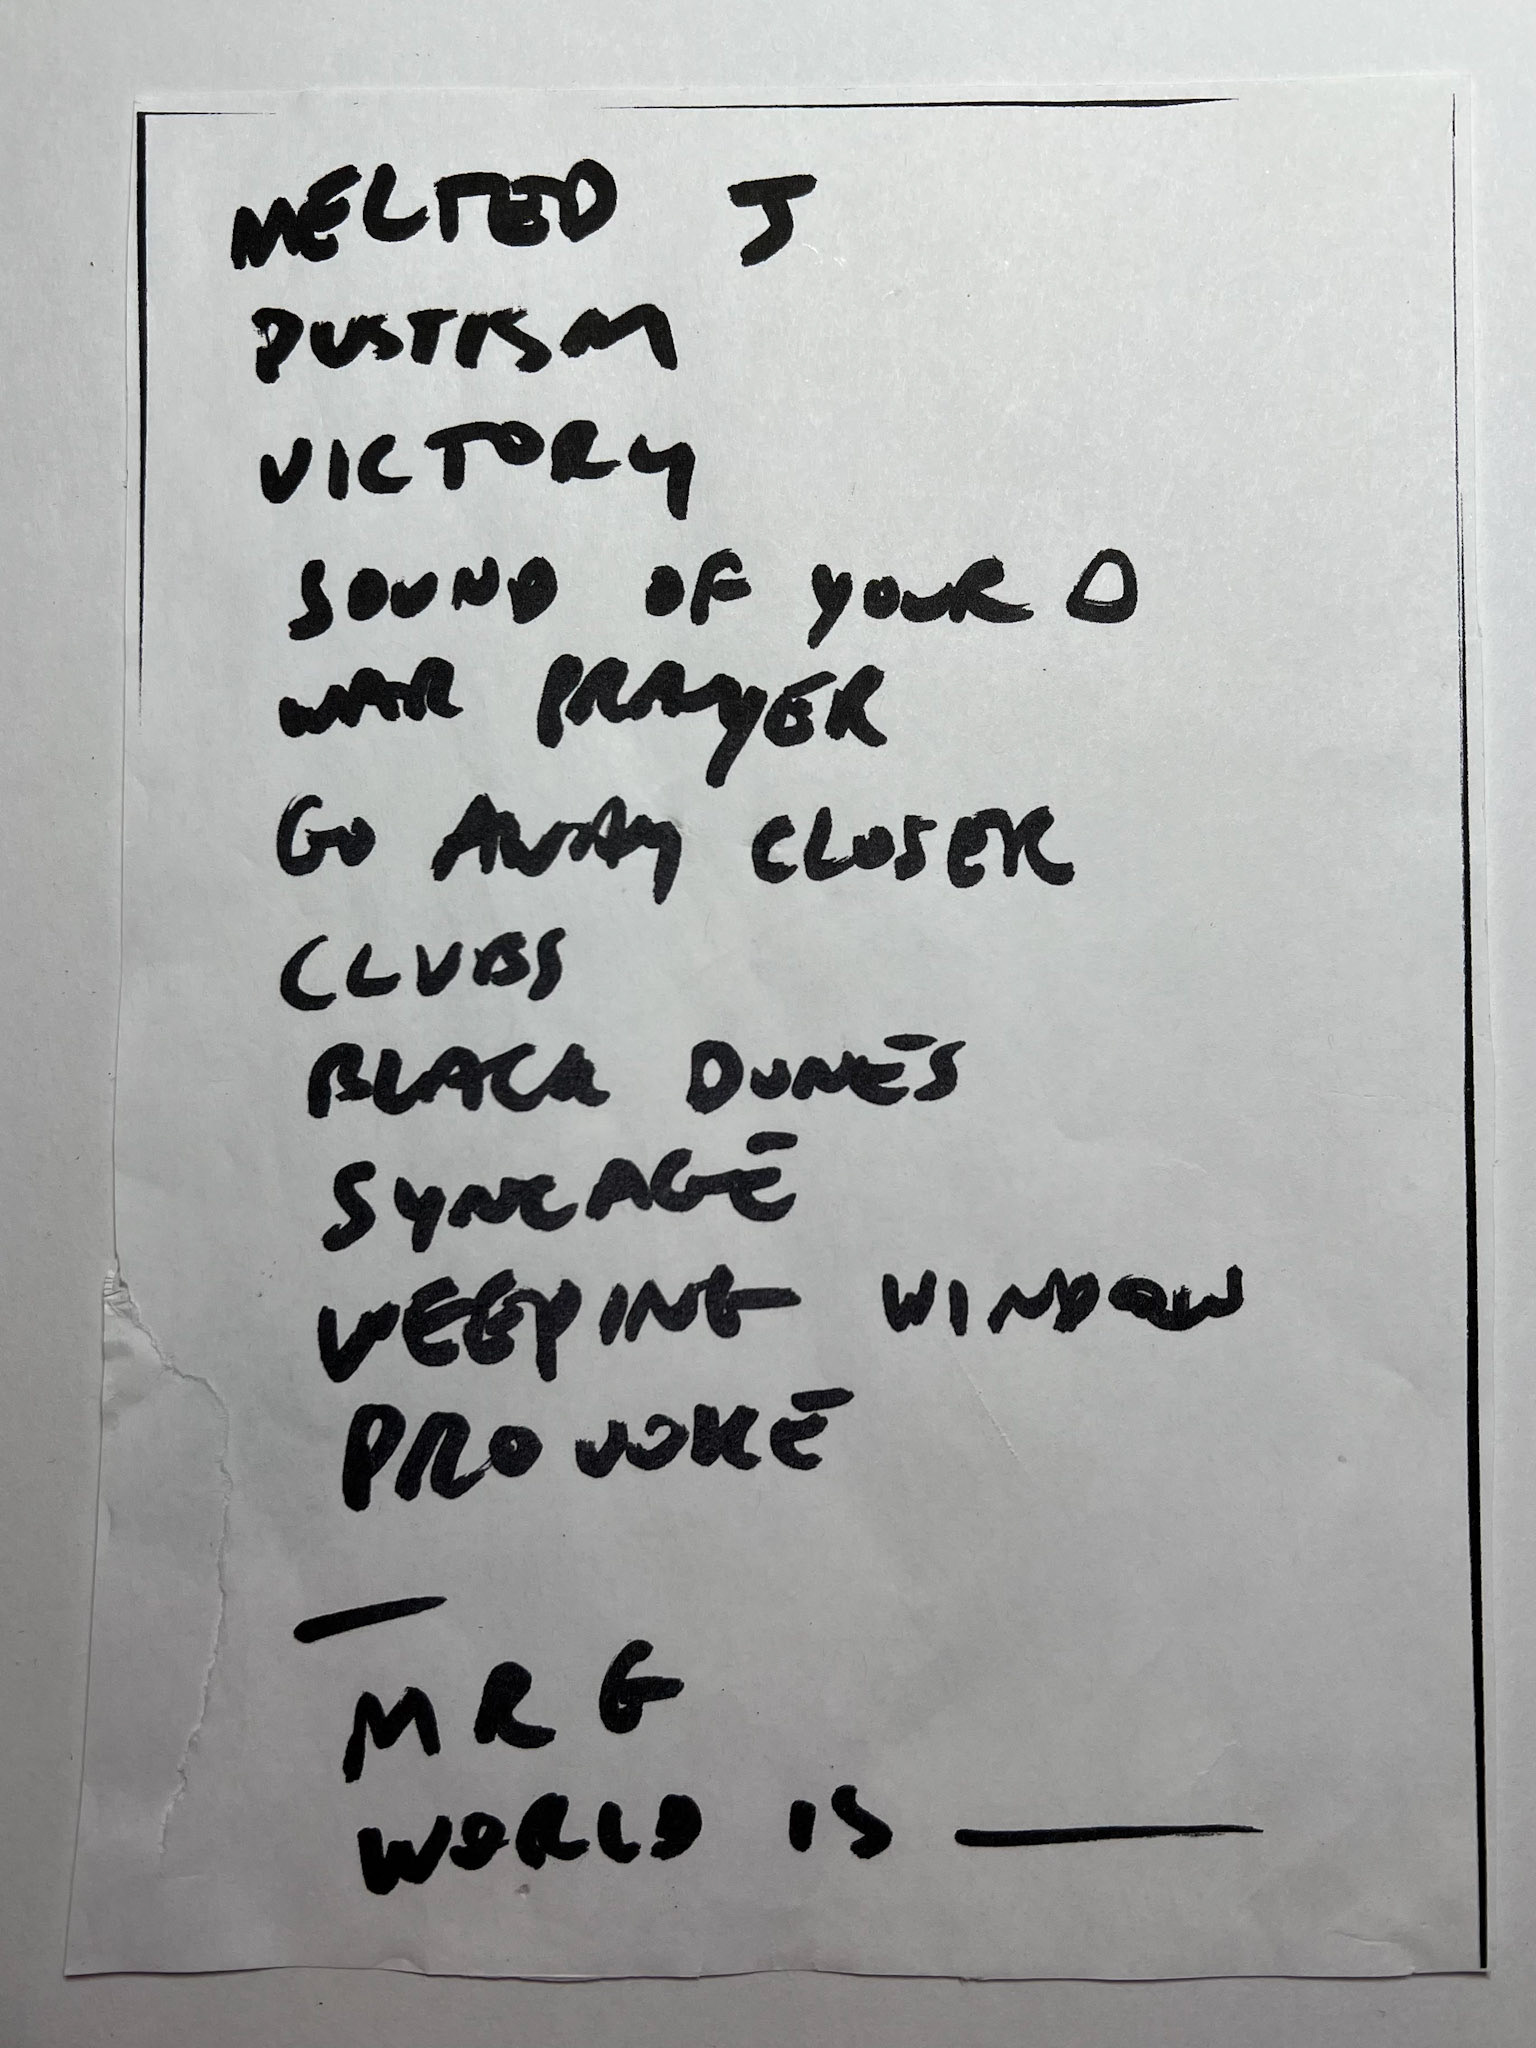 MELTED J
DUSTISM
VICTORY
SOUND OF YOUR D
WAR PRAYER
GO AWAY CLOSER
CLUBS
BLACK DUNES
SYNCAGE
WEEPING WINDOW
PROVOKE
—
MR G
WORLD IS ———